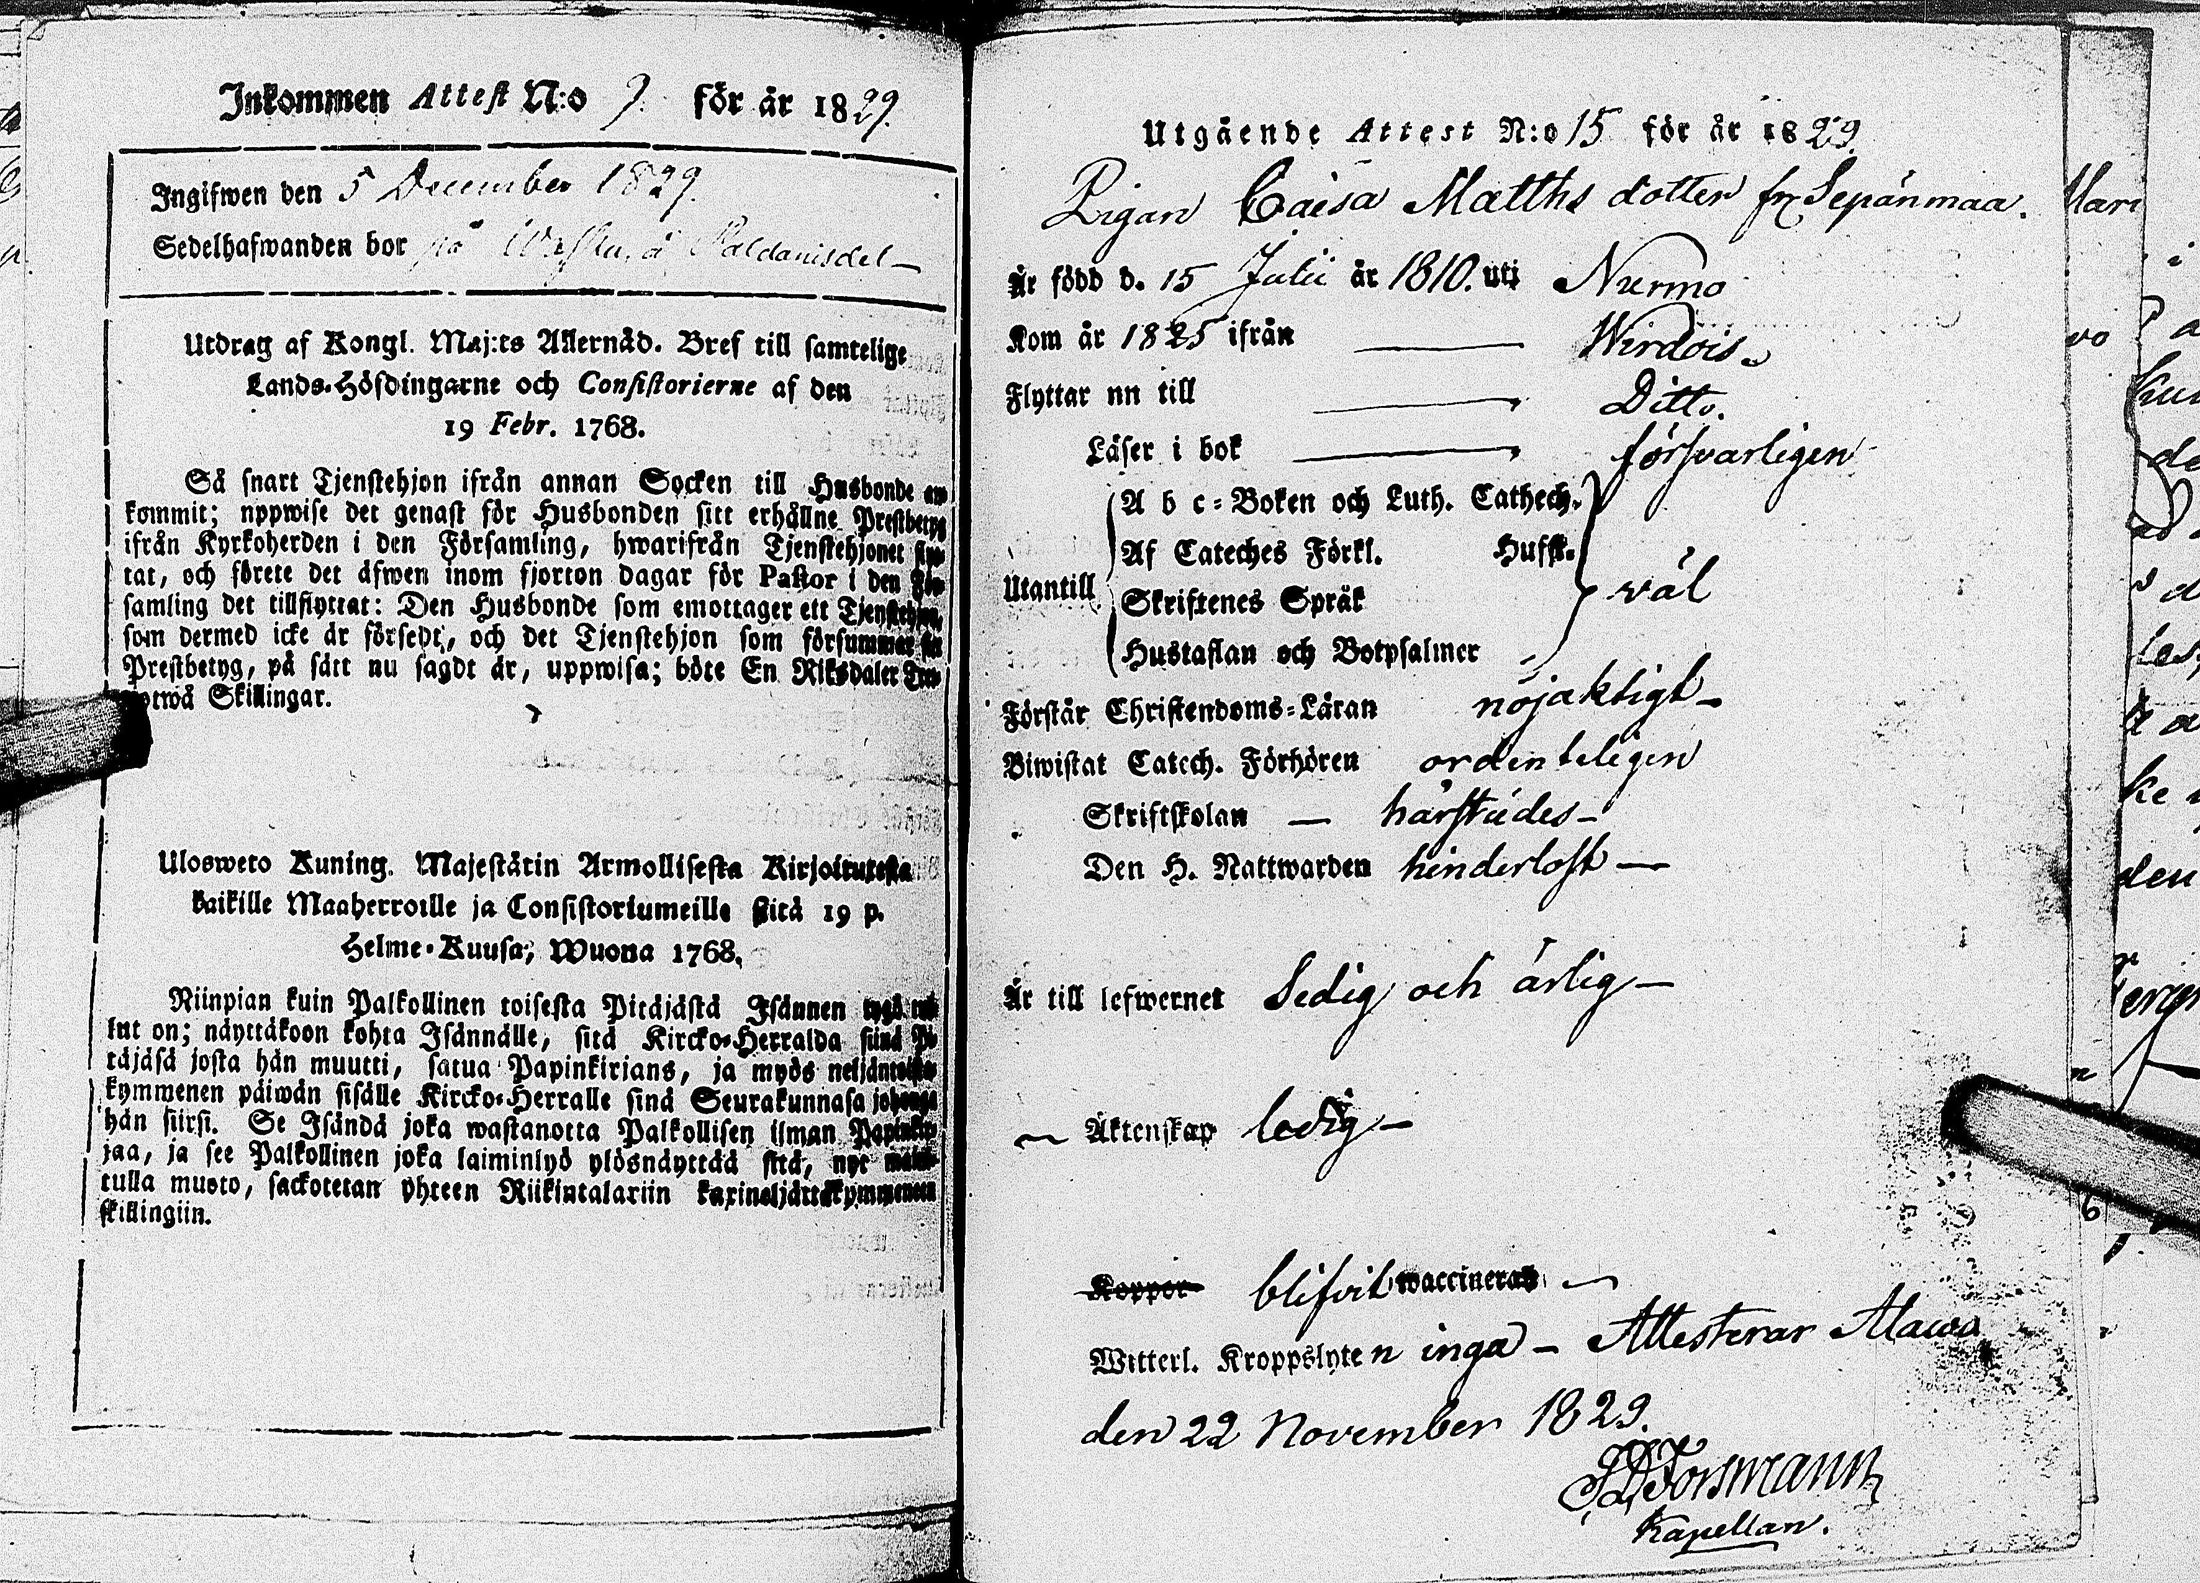 Inkommen Attest N:o 9. för år 1829.
Ingifwen den 5 December 1829.
Sedelhafwanden bor på
Utdrag af Kongl. Maj:ts Allernåd. Bref till samtelige
Lands-Höfdingarne och Consistorierne af den
19 Febr. 1768.
Så snart Tjenstehjon ifrån annan Socken till Husbonde an
kommit; uppwise det genast för Husbonden sitt erhållne Prestbetyg
ifrån Kyrkoherden i den Församling, hwarifrån Tjenstehjonet flyt-
tat, och förete det äfwen inom fjorton dagar för Pastor i den För-
samling det tillflyttat: Den Husbonde som emottager ett Tjenstehjon,
som dermed icke är försedt, och det Tjenstehjon som försummar sitt
Prestbetyg, på sätt nu sagdt är, uppwisa; böte En Riksdaler Tre-
tiotwå Skillingar.
Ulosweto Kuning. Majestätin Armollisesta Kirjoituxesta
kaikille Maaherroille ja Consistoriumeille siitä 19 p.
Helme-Kuusa, Wuona 1768.
Niinpian kuin Palkollinen toisesta Pitäjästä Isännen tygö tul-
lut on; näyttäkoon kohta Isännälle, sitä Kircko-Herralda siinä Pi-
täjäsä josta hän muutti, saatua Papinkirjans, ja myös neljäntoista-
kymmenen päiwän sisälle Kircko-Herralle siinä Seurakunnasa johonga
hän siirsi. Se Isändä joka wastanotta Palkollisen ilman Papinkir-
jaa, ja see Palkollinen joka laiminlyö ylösnäyttää sitä, nyt maini-
tulla muoto, sackotetan yhteen Riikintalariin kaxineljättäkymmeneen
skillingiin.
Utgående Attest N:o 15 för år 1829.
Pigan Caisa Matths dotter fr Sepänmaa.
Är född d. 15 Julii år 1810. uti Nurmo
Kom år 1825 ifrån — Wirdois
Flyttar nu till — Ditto.
Läser i bok — försvarligen
Utantill
A b c-Boken och Luth. Cathech.
Af Cateches Förkl. Hufst.
Skriftenes Språk
wäl
Hustaflan och Botpsalmer
Förstår Christendoms-Läran nöjaktigt —
Biwistat Catech. Förhören ordenteligen
Skriftskolan — härstädes —
Den H. Nattwarden hinderlöst —
Är till lefwernet Sedig och ärlig —
— Äktenskap ledig —
Koppor blifvit waccinerad —
Witterl. Kroppslyten inga — Attesterar Alawo
den 22 November 1829.
Forsmann
Kapellan.